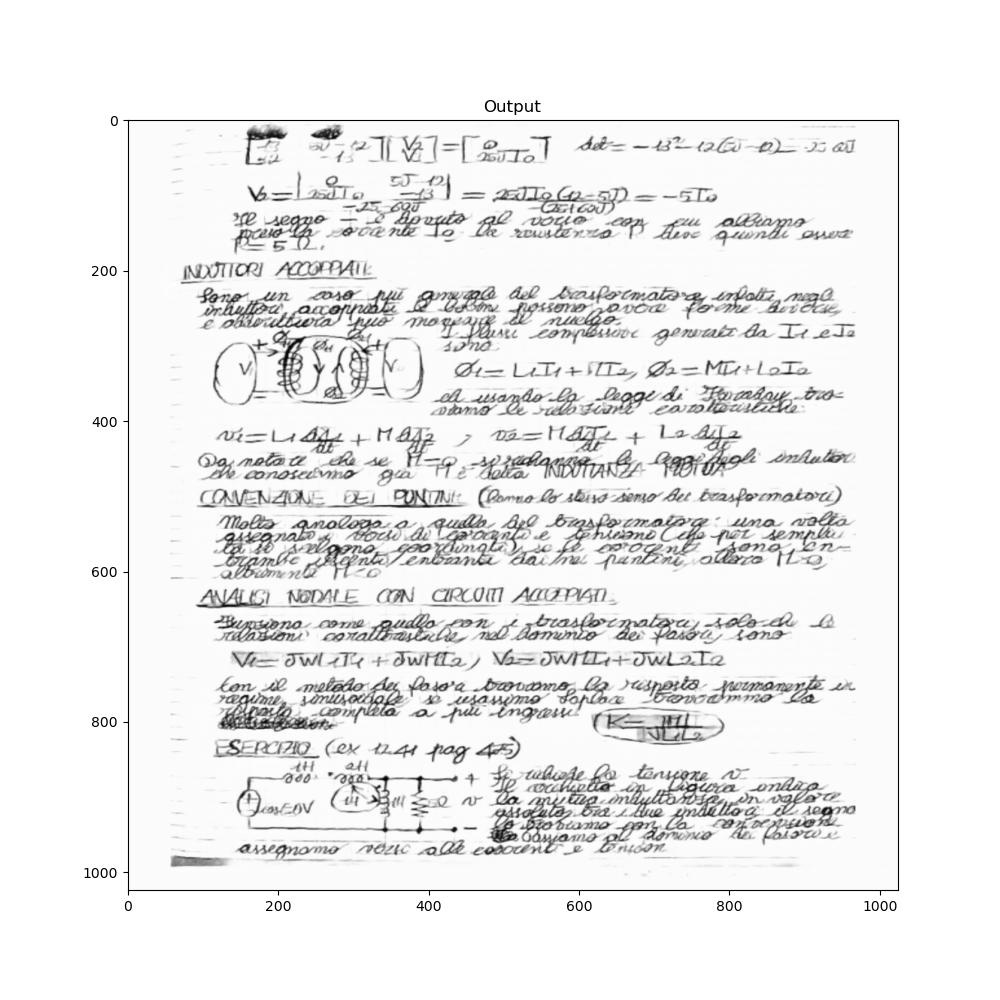 Output
det = -13² - 12(5J - 12) = 25 60J
V2 = = 25JI0(12-5J) = -5I0
-25-60J -(25+60J)
Il segno - è dovuto al verso con cui abbiamo
preso la corrente I0. La resistenza P deve quindi essere
R = 5 Ω.
INDUTTORI ACCOPPIATI:
Sono un caso più generale del trasformatore, infatti negli
induttori accoppiati le bobine possono avere forme diverse,
e addirittura può mancare il nucleo.
I flussi complessivi generati da I1 e I2
sono:
Ø1 = L1I1 + MI2, Ø2 = MI1 + L2I2
ed usando la legge di Faraday tro-
viamo le relazioni caratteristiche:
v1 = L1 dI1/dt + M dI2/dt , v2 = M dI1/dt + L2 dI2/dt
Da notare che se M=0 si riducono le leggi degli induttori
che conosciamo già. M è detta INDUTTANZA MUTUA
CONVENZIONE DEI PUNTINI: (hanno lo stesso senso dei trasformatori)
Molto analoga a quella del trasformatore: una volta
assegnati i versi di correnti e tensioni (che per sempli-
cità si scelgono coordinati), se le correnti sono en-
trambe uscenti/entranti dai/nei puntini, allora M>0,
altrimenti M<0
ANALISI NODALE CON CIRCUITI ACCOPPIATI:
Funziona come quella con i trasformatori, solo che le
relazioni caratteristiche, nel dominio dei fasori, sono
V1 = JWL1I1 + JWMI2, V2 = JWMI1 + JWL2I2
Con il metodo dei fasori troviamo la risposta permanente in
regime sinusoidale se usassimo Laplace troveremmo la
risposta completa a più ingressi
K = |M|/√L1L2
ESERCIZIO (ex 12.41 pag 475)
1H 2H
1H 1H Ω v
+
-
Si richiede la tensione v.
Il cerchietto in figura indica
la mutua induttanza, in valore
assoluto, tra i due induttori: il segno
lo troviamo con la convenzione
Passiamo al dominio dei fasori e
assegnamo versi alle correnti e tensioni
0
200
400
600
800
1000
0 200 400 600 800 1000